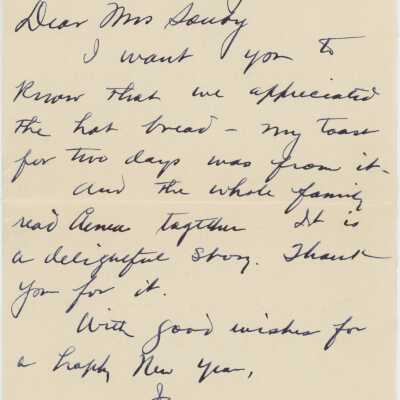 Dear Mrs
I want you to
know that we appreciated
the hot bread – my toast
for two days was from it –
and the whole family
read together It is
a delightful story. Thank
you for it.
With good wishes for
a happy New Year,